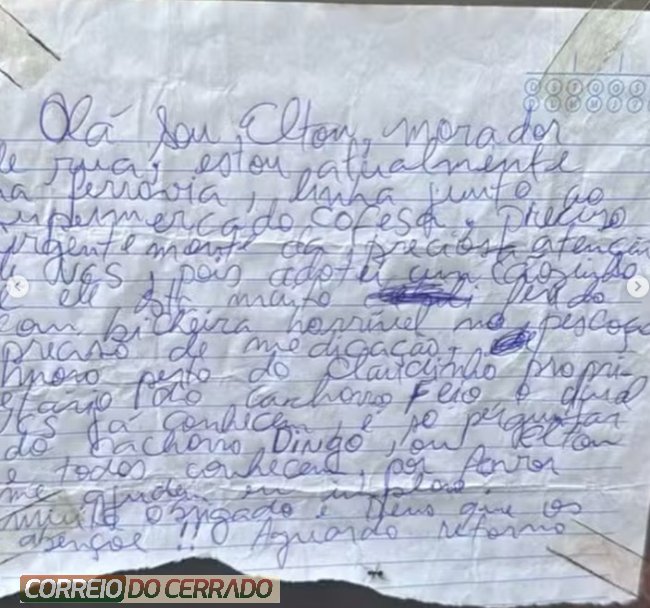 Olá sou, Elton, morador
de rua, estou atualmente
na ferrovia, linha junto ao
supermercado Cofesa, preciso
urgentemente da preciosa atenção
de VCS, pois adotei um cãozinho
e ele está muito ferido
com bicheira horrível no pescoço
preciso de medicação.
moro perto do Claudinho propri-
etário do cachorro Feio o qual
VCS já conhecem e se perguntar
do cachorro Dingo, ou Elton
e todos conhecem, por favor
me ajudem eu imploro.
muito obrigado e Deus que os
abençoe !! Aguardo retorno
CORREIO DO CERRADO